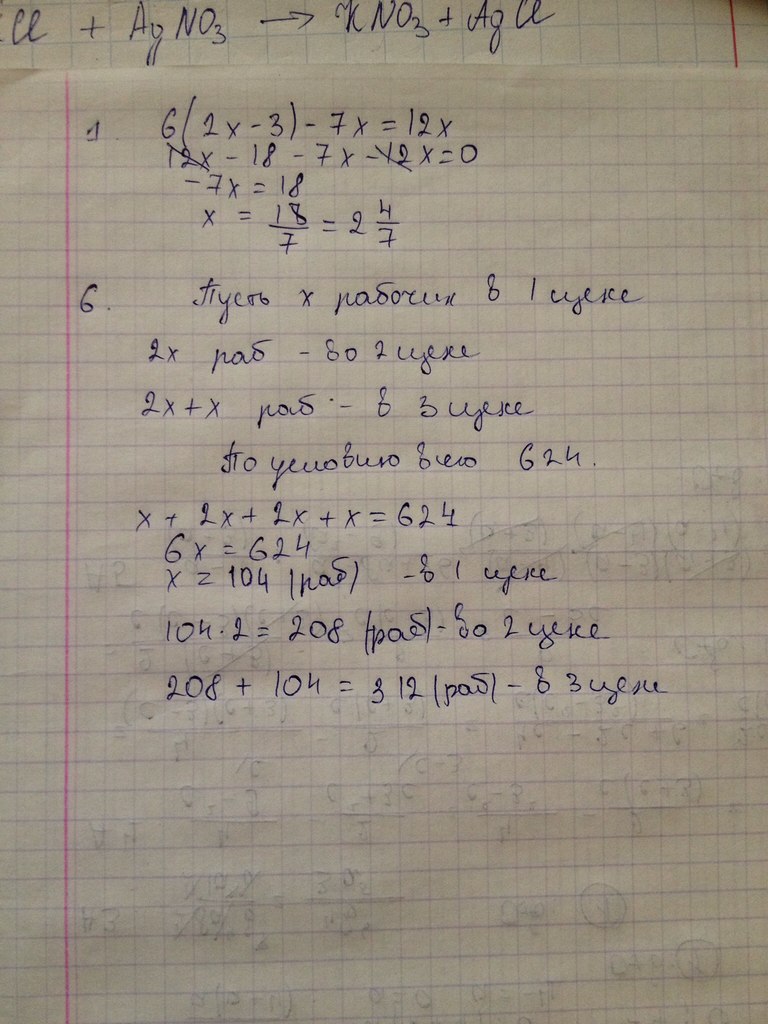 Cl + AgNO₃ → KNO₃ + AgCl
1. 6(2x - 3) - 7x = 12x
12x - 18 - 7x - 12x = 0
-7x = 18
x = 18/7 = 2 4/7
6. Пусть x рабочих в 1 цехе
2x раб - во 2 цехе
2x + x раб - в 3 цехе
По условию всего 624.
x + 2x + 2x + x = 624
6x = 624
x = 104 (раб) - в 1 цехе
104 · 2 = 208 (раб) - во 2 цехе
208 + 104 = 312 (раб) - в 3 цехе